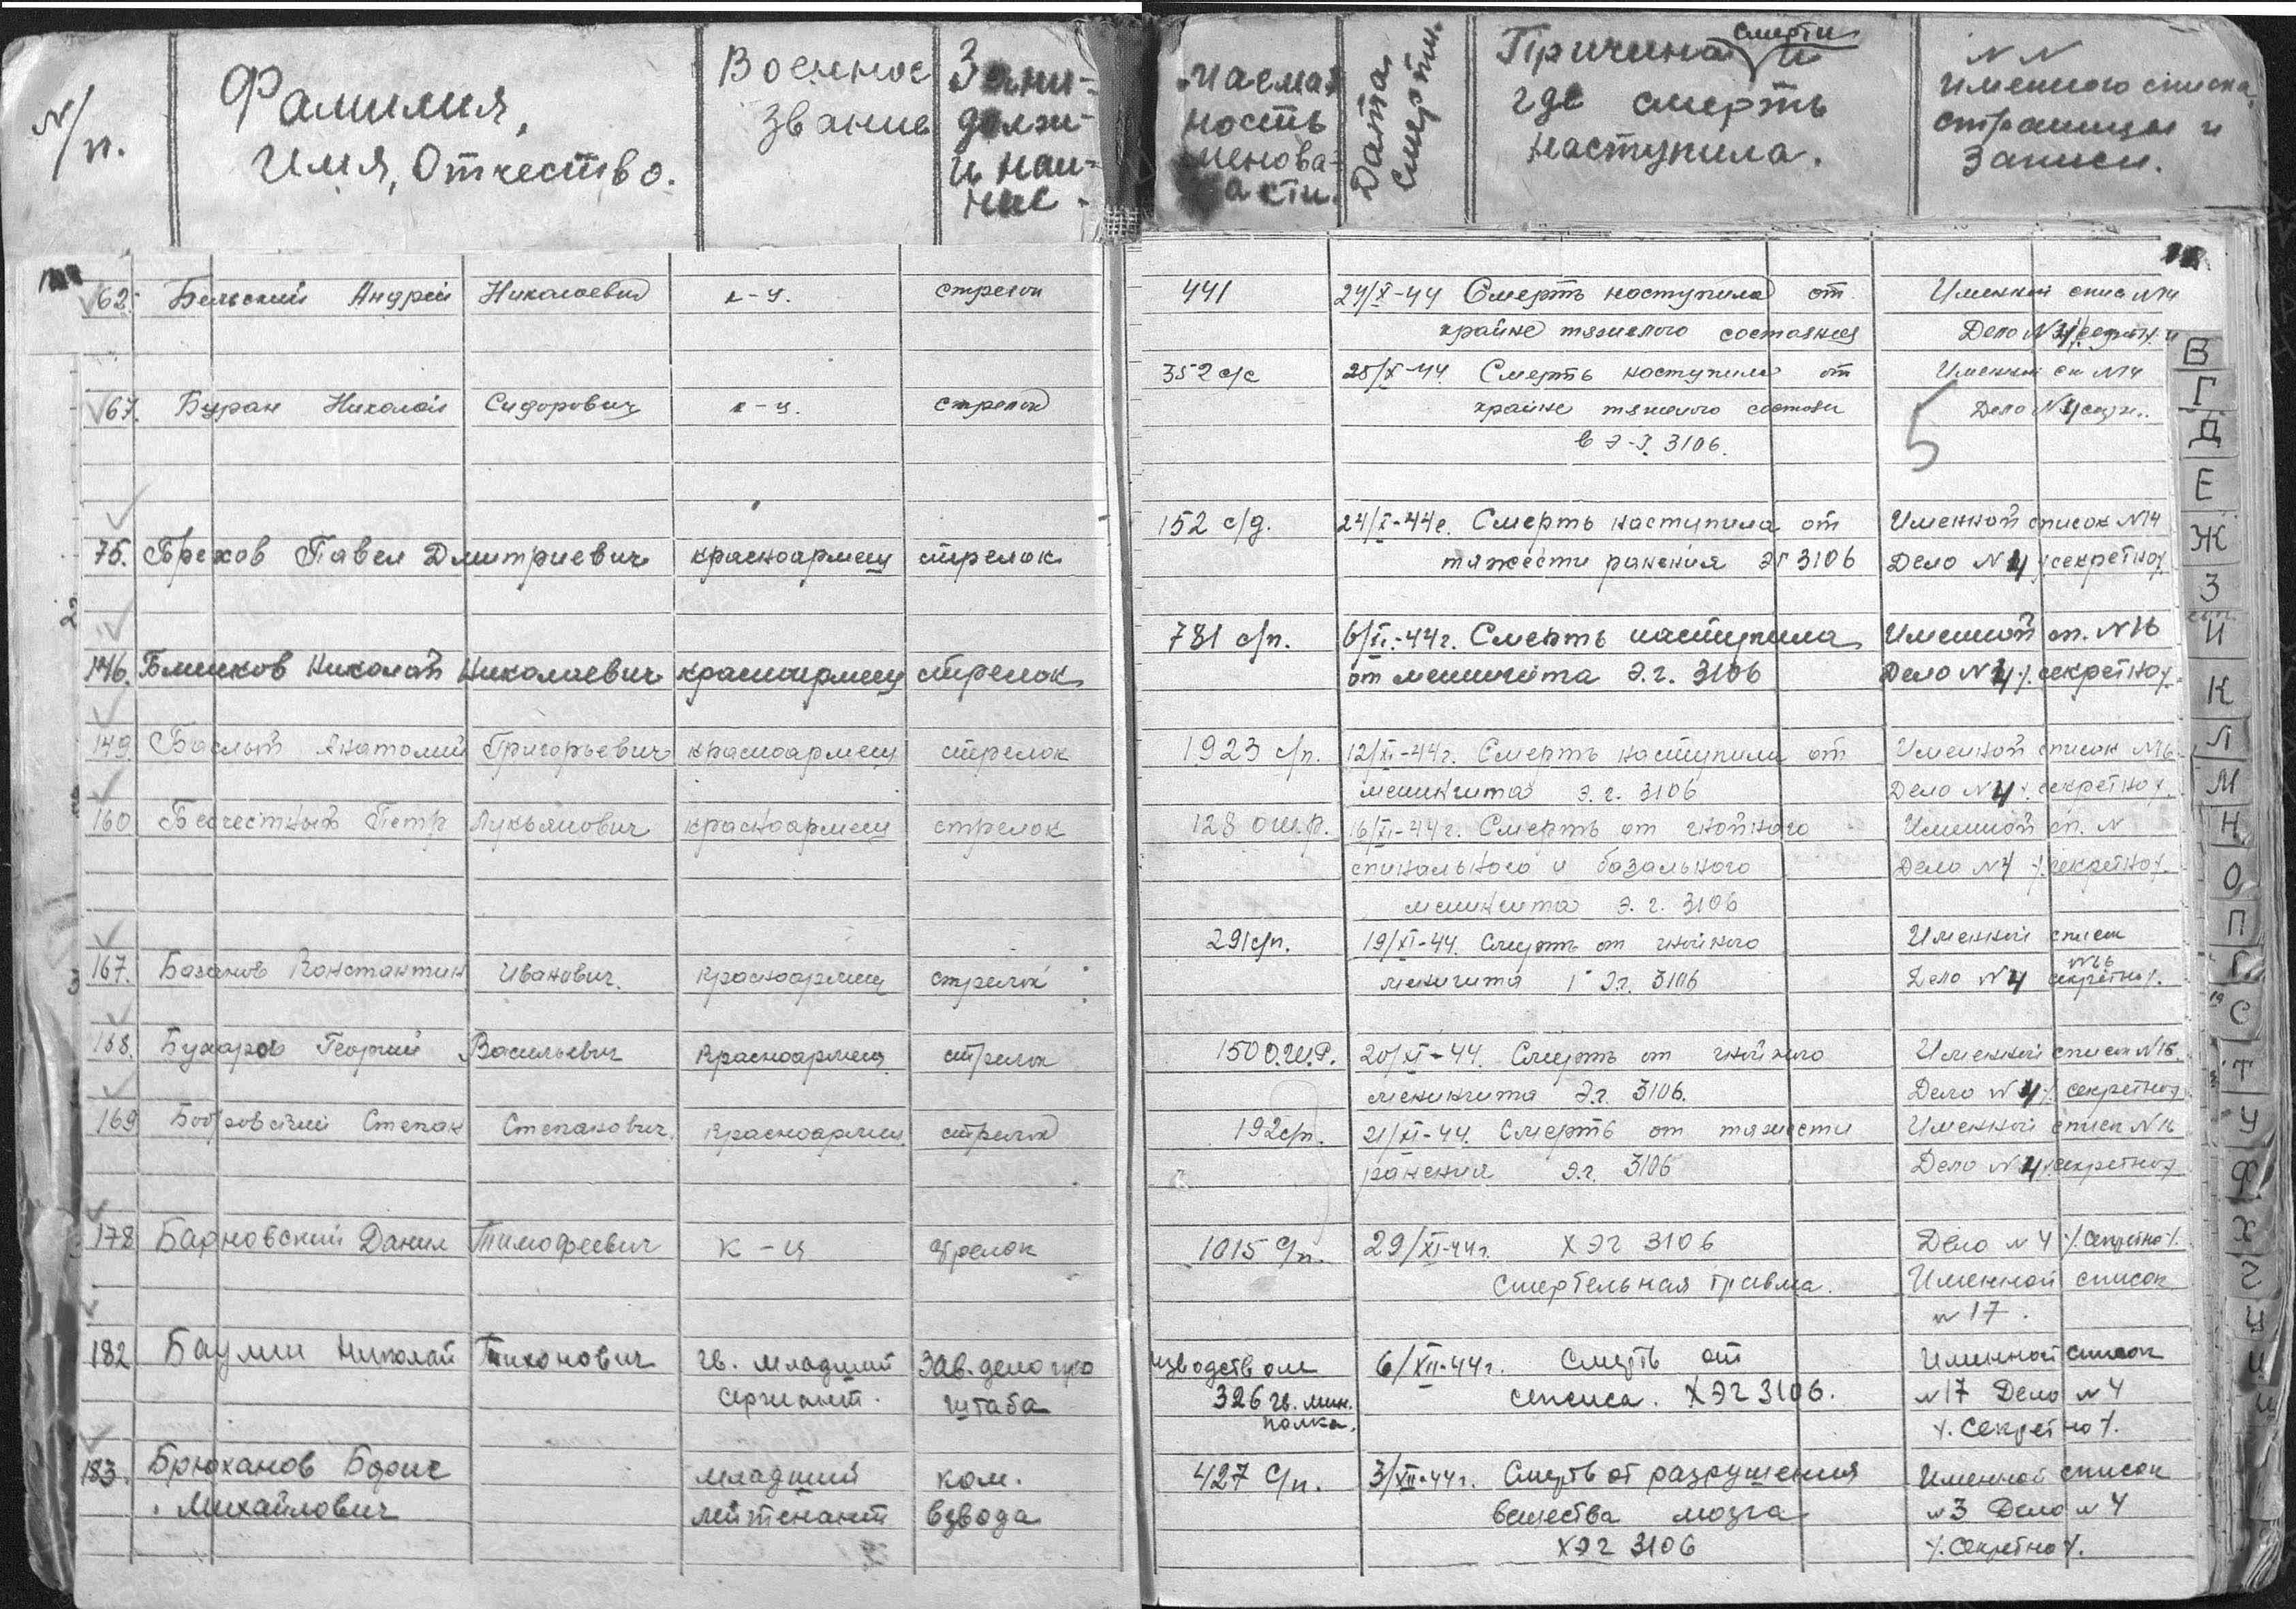 N/п.
Фамилия,
Имя, Отчество.
Военное
звание
Зани-
долж-
и наи-
ние
маема
ность
менова-
асти.
Дата
смерти.
Причина смерти и
где смерть
наступила.
N N
именного списка,
страницы и
записи.
62. Бельский Андрей Николаевич к-ц. стрелок 441 24/X-44 Смерть наступила от Именной спис N14
крайне тяжелого состояния Дело N 4
352 с/с 25/X-44. Смерть наступила от Именной сп N14
67. Буран Николай Сидорович к-ц. стрелок крайне тяжелого состоян Дело N 4
в Э-Г. 3106.
5
152 с/д. 24/X-44г. Смерть наступила от Именной список N14
75. Брехов Павел Дмитриевич красноармеец стрелок тяжести ранения ЭГ 3106 Дело N 4 /.секретно/.
781 с/п. 6/XI-44г. Смерть наступила Именной сп. N16
146. Блинков Николай Николаевич красноармеец стрелок от менингита Э.г. 3106 Дело N 4 /. секретно/.
149. Анатолий Григорьевич красноармеец стрелок 1923 с/п. 12/XI-44г. Смерть наступила от Именной список N16
менингита Э.г. 3106 Дело N 4 /. секретно/.
160 Бесчестный Петр Лукьянович красноармеец стрелок 128 ош.р. 16/XI-44г. Смерть от гнойного Именной сп. N
спинального и базального Дело N4 /.секретно/.
менингита Э.г. 3106
291с/п. 19/XI-44. Смерть от гнойного Именной список
167. Базанов Константин Иванович. красноармеец стрелок менингита Эг. 3106 Дело N 4 N16 секретно/.
168. Бухаров Георгий Васильевич красноармеец стрелок 150О.Ш.Р. 20/XI-44. Смерть от гнойного Именной список N16.
менингита Э.г. 3106. Дело N 4 /. секретно/.
169 Бобровский Степан Степанович. красноармеец стрелок 192с/п. 21/XI-44. Смерть от тяжести Именной список N16
ранения Э.г. 3106 Дело N 4 /.секретно/.
178 Барновский Данил Тимофеевич к-ц стрелок 1015 с/п. 29/XI-44г. ХЭГ 3106 Дело N 4 /.секретно/.
Смертельная травма. Именной список
N 17.
182 Баулин Николай Тихонович гв. младший зав. делопро изводством 6/XII-44г. Смерть от Именной список
сержант. штаба 326 гв. мин. полка. сепсиса. ХЭГ 3106. N17 Дело N 4
/. Секретно/.
183. Брюханов Борис младший ком. 427 с/п. 3/XII-44г. Смерть от разрушения Именной список
Михайлович лейтенант взвода вещества мозга N3 Дело N 4
ХЭГ 3106 /.Секретно/.
В
Г
Д
Е
Ж
З
И
К
Л
М
Н
О
П
С
Т
У
Ф
Х
Ц